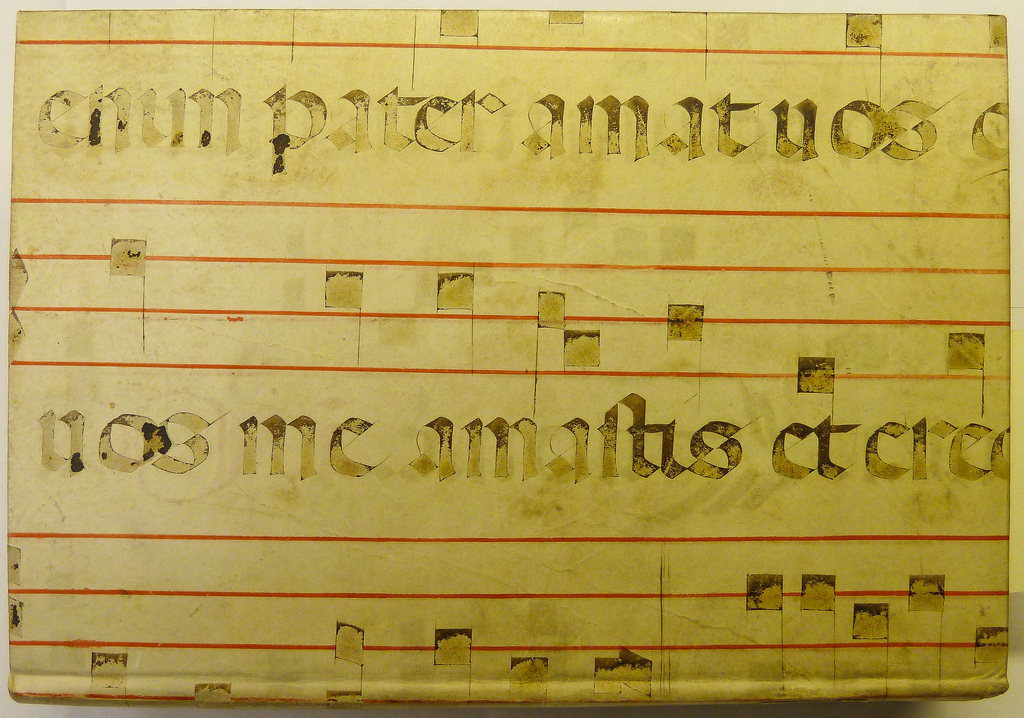 enim pater amat uos
uos me amastis et cred